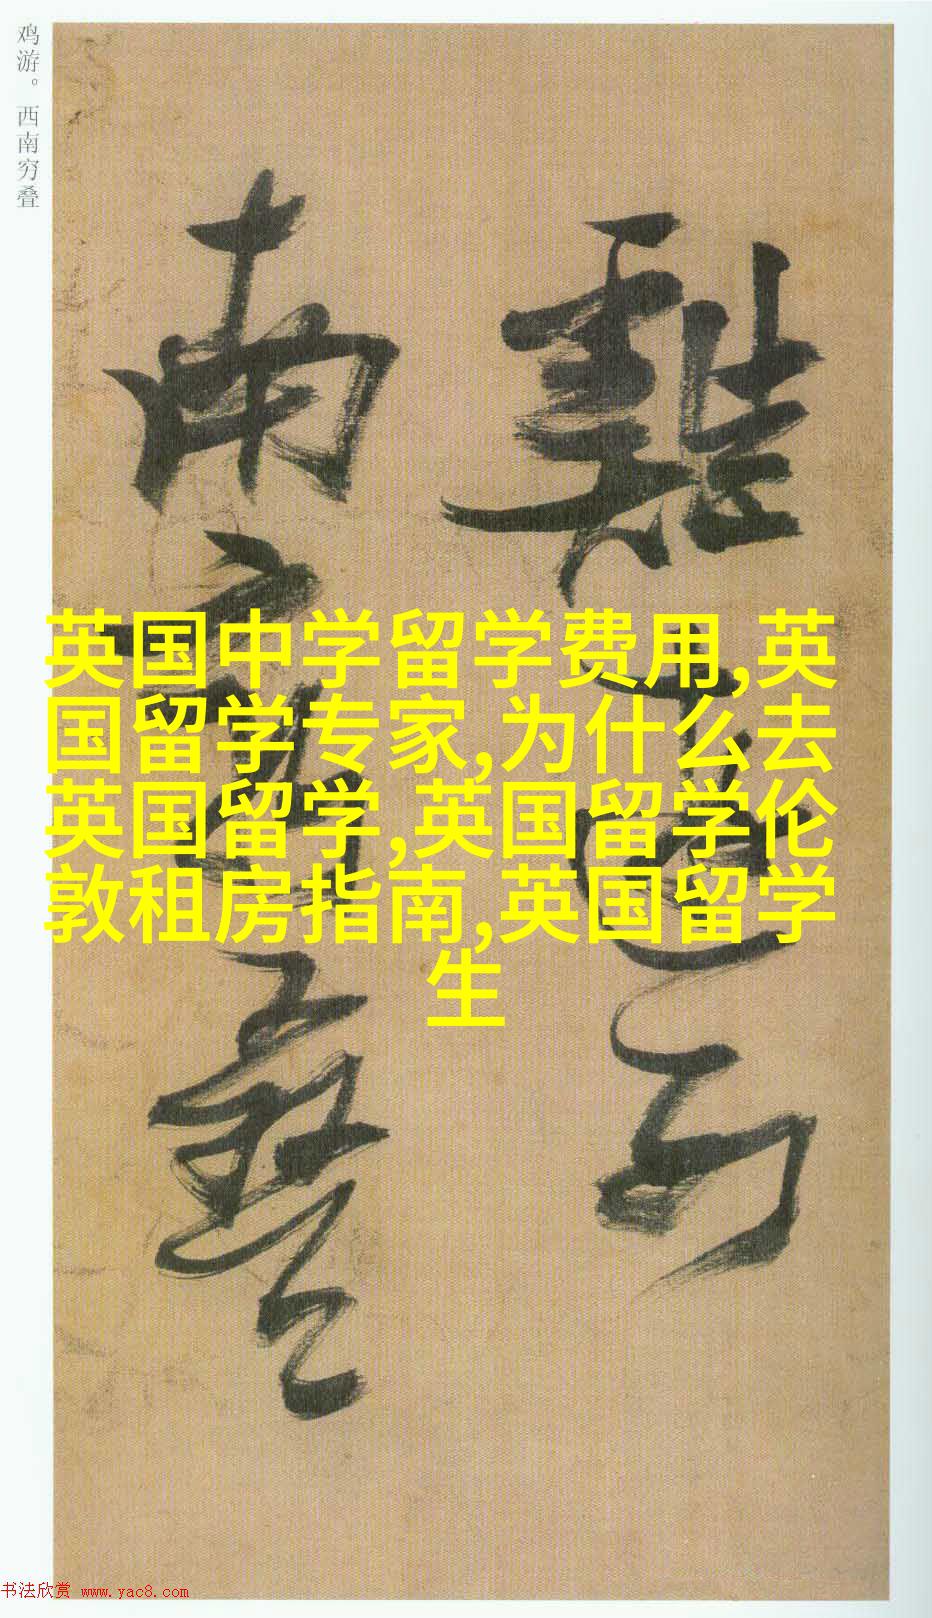 鸡游。西南穷叠
雞遊西
南窮疊
英国中学留学费用,英
国留学专家,为什么去
英国留学,英国留学伦
敦租房指南,英国留学
生
书法欣赏 www.yac8.com